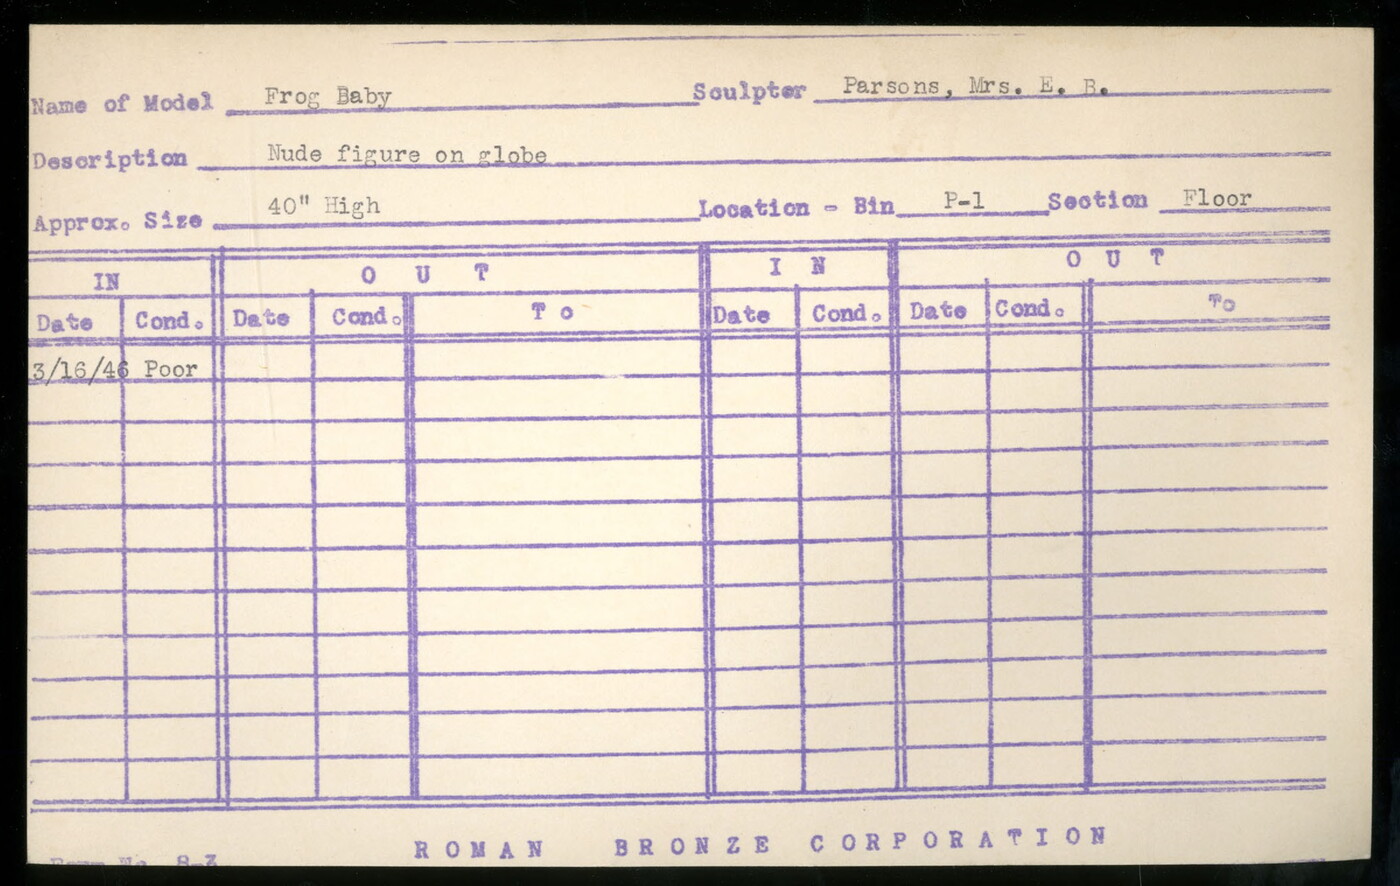 Name of Model Frog Baby Sculptor Parsons, Mrs. E. B.
Description Nude figure on globe
Approx. Size 40" High Location - Bin P-1 Section Floor
IN O U T I N O U T
Date Cond. Date Cond. T o Date Cond. Date Cond. To
3/16/46 Poor
ROMAN BRONZE CORPORATION
Form No. 8-3